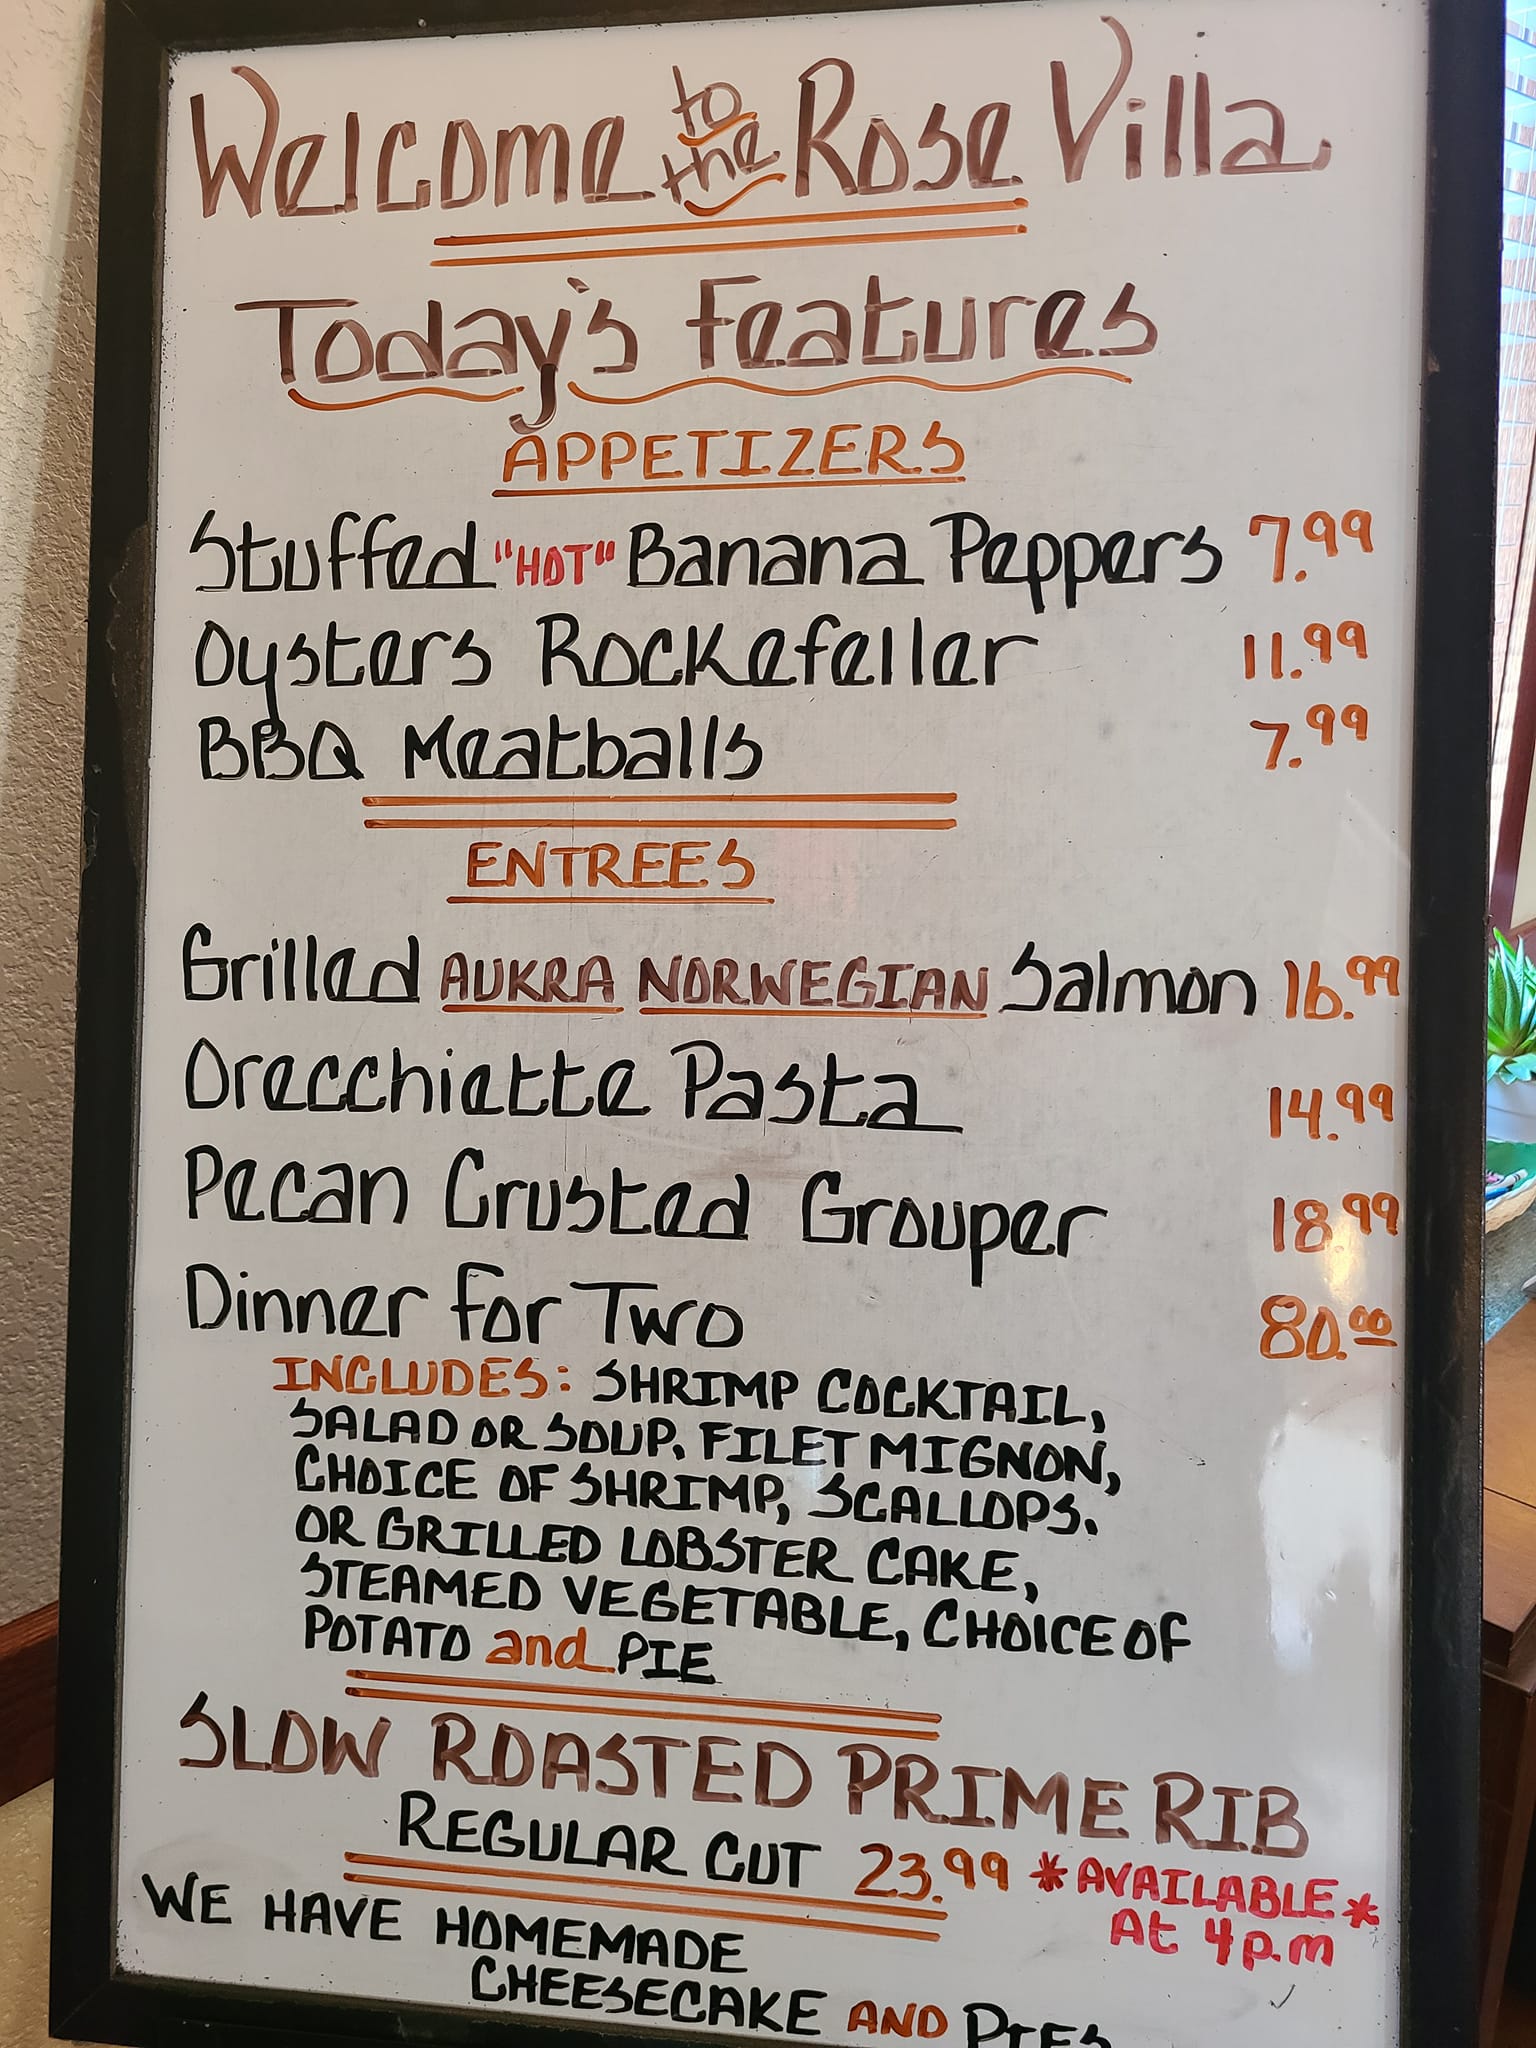 Welcome to the Rose Villa
Today's Features
APPETIZERS
Stuffed "HOT" Banana Peppers 7.99
Oysters Rockefeller 11.99
BBQ Meatballs 7.99
ENTREES
Grilled AUKRA NORWEGIAN Salmon 16.99
Orecchiette Pasta 14.99
Pecan Crusted Grouper 18.99
Dinner for Two 80.00
INCLUDES: SHRIMP COCKTAIL,
SALAD OR SOUP, FILET MIGNON,
CHOICE OF SHRIMP, SCALLOPS,
OR GRILLED LOBSTER CAKE,
STEAMED VEGETABLE, CHOICE OF
POTATO and PIE
SLOW ROASTED PRIME RIB
REGULAR CUT 23.99 *AVAILABLE*
At 4p.m
WE HAVE HOMEMADE
CHEESECAKE AND PIES